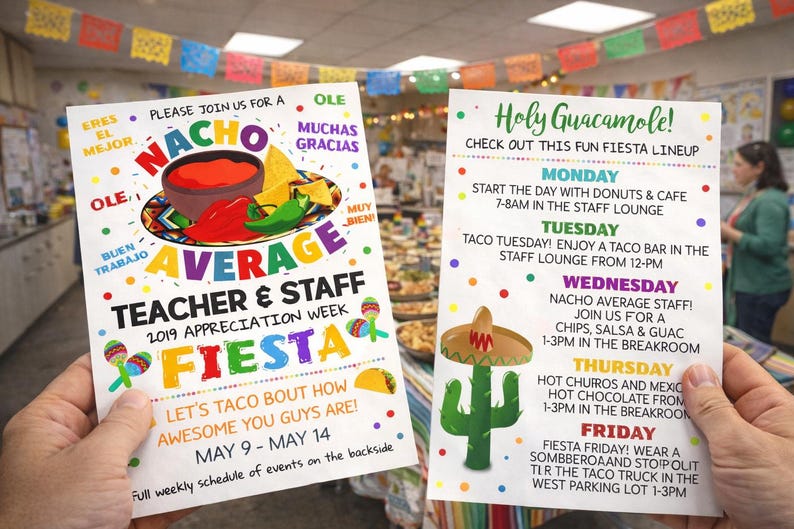 PLEASE JOIN US FOR A
OLE
ERES
EL
MEJOR
NACHO
MUCHAS
GRACIAS
OLE
MUY
BIEN!
BUEN
TRABAJO
AVERAGE
TEACHER & STAFF
2019 APPRECIATION WEEK
FIESTA
LET'S TACO BOUT HOW
AWESOME YOU GUYS ARE!
MAY 9 - MAY 14
Full weekly schedule of events on the backside
Holy Guacamole!
CHECK OUT THIS FUN FIESTA LINEUP
MONDAY
START THE DAY WITH DONUTS & CAFE
7-8AM IN THE STAFF LOUNGE
TUESDAY
TACO TUESDAY! ENJOY A TACO BAR IN THE
STAFF LOUNGE FROM 12-PM
WEDNESDAY
NACHO AVERAGE STAFF!
JOIN US FOR A
CHIPS, SALSA & GUAC
1-3PM IN THE BREAKROOM
THURSDAY
HOT CHUROS AND MEXIC
HOT CHOCOLATE FROM
1-3PM IN THE BREAKROOM
FRIDAY
FIESTA FRIDAY! WEAR A
SOMBBEROAAND STOP OUT
THE TACO TRUCK IN THE
WEST PARKING LOT 1-3PM